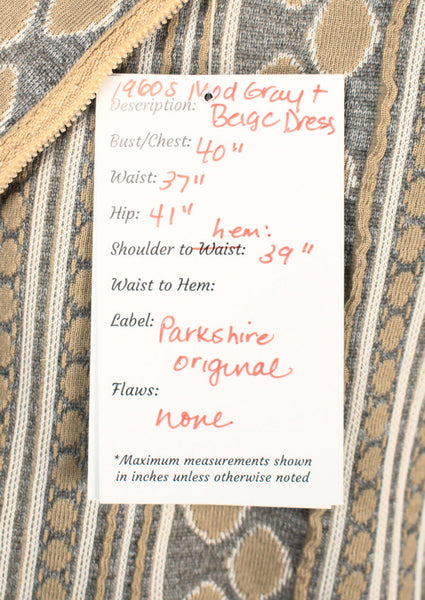 1960s Mod Gray +
Description: Beige Dress
Bust/Chest: 40"
Waist: 37"
Hip: 41"
hem:
Shoulder to Waist: 39"
Waist to Hem:
Label: Parkshire
original
Flaws:
none
*Maximum measurements shown
in inches unless otherwise noted